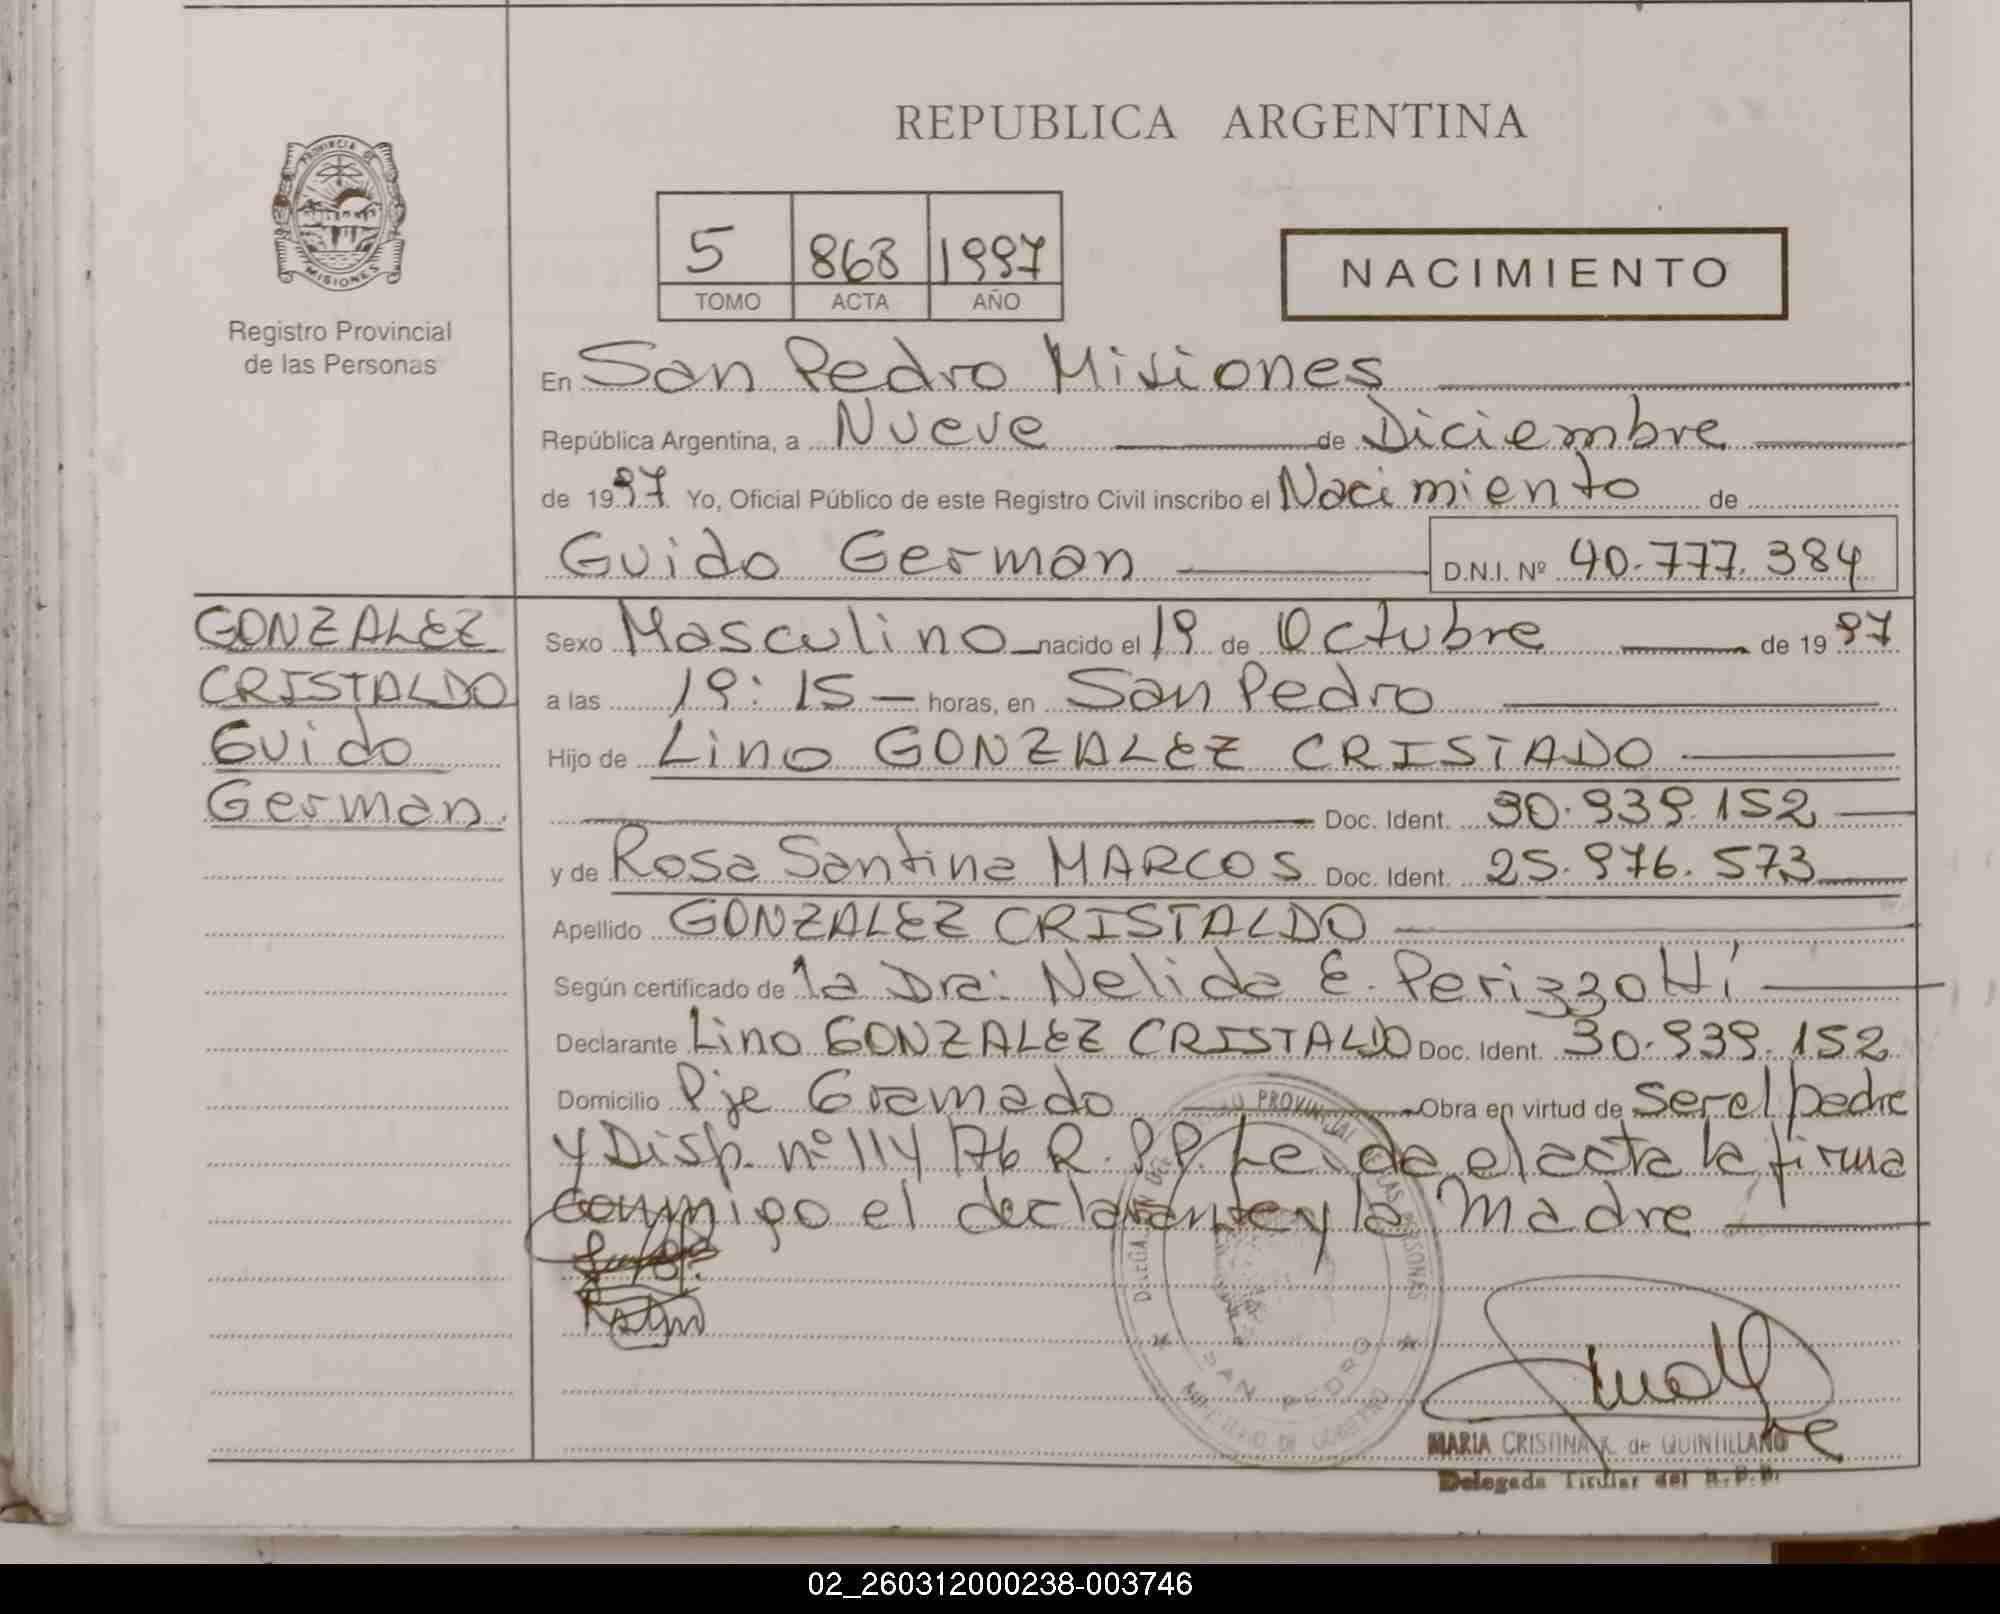 REPUBLICA ARGENTINA
PROVINCIA DE MISIONES
Registro Provincial
de las Personas
5 863 1997
TOMO ACTA AÑO
NACIMIENTO
En San Pedro Misiones
República Argentina, a Nueve de Diciembre
de 1997 Yo, Oficial Público de este Registro Civil inscribo el Nacimiento de
Guido German D.N.I. Nº 40.777.384
GONZALEZ
CRISTALDO
Guido
German
Sexo Masculino nacido el 19 de Octubre de 1997
a las 19:15 horas, en San Pedro
Hijo de Lino GONZALEZ CRISTADO
Doc. Ident. 30.939.152
y de Rosa Santina MARCOS Doc. Ident. 25.976.573
Apellido GONZALEZ CRISTALDO
Según certificado de la Dra: Nelida E. Perizzotti
Declarante Lino GONZALEZ CRISTALDO Doc. Ident. 30.939.152
Domicilio Pje Gramado Obra en virtud de ser el padre
y Disp. nº 114/76 R.P.P. Leida el acta la firma
conmigo el declarante y la Madre
DELEGACION DEL PROVINCIAL DE LAS PERSONAS
SAN PEDRO
MINISTERIO DE GOBIERNO
MARIA CRISTINA K. de QUINTILLANO
Delegada Titular del R.P.P.
02_260312000238-003746